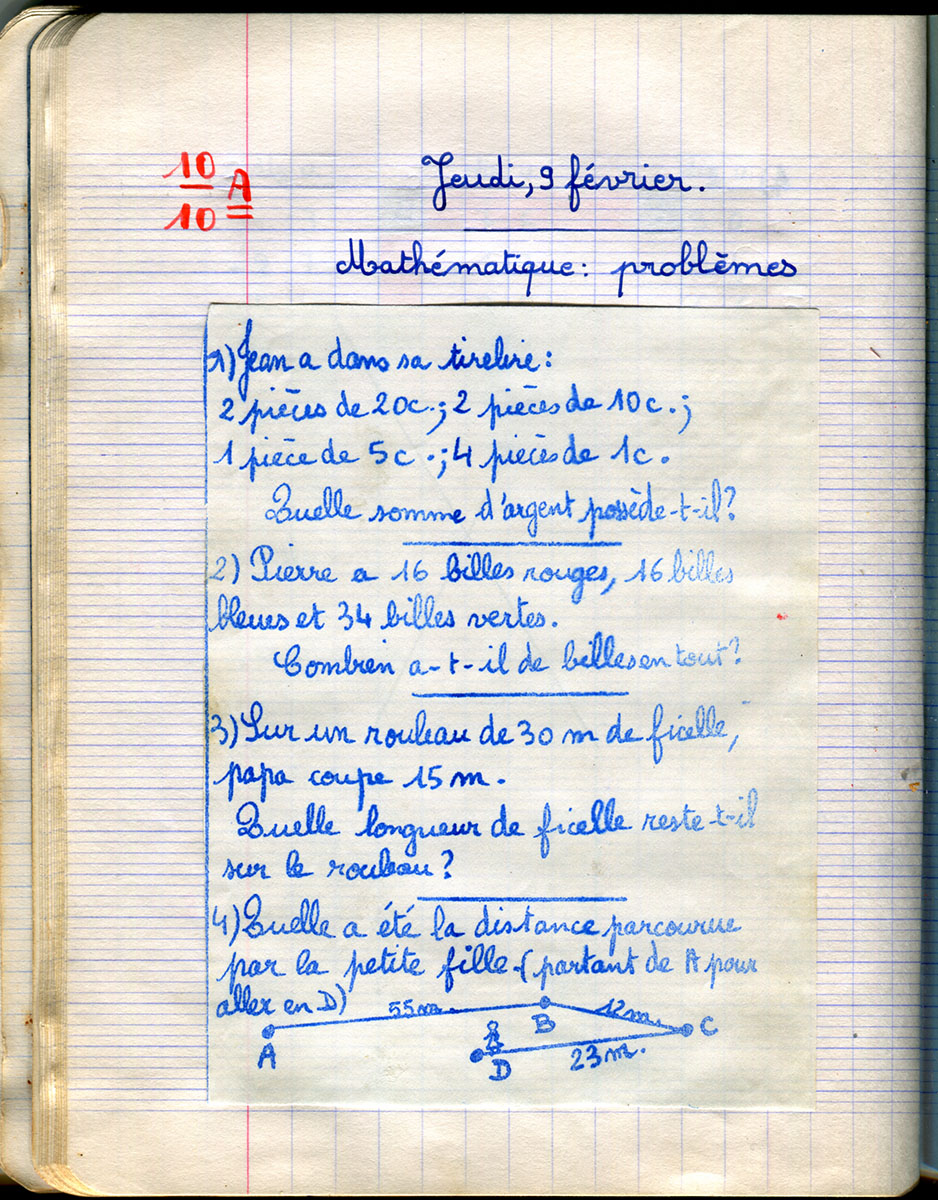 10
10 A
Jeudi, 9 février.
Mathématique : problèmes
1) Jean a dans sa tirelire :
2 pièces de 20c. ; 2 pièces de 10c. ;
1 pièce de 5c . ; 4 pièces de 1c .
Quelle somme d'argent possède-t-il ?
2) Pierre a 16 billes rouges, 16 billes
bleues et 34 billes vertes.
Combien a-t-il de billes en tout ?
3) Sur un rouleau de 30 m de ficelle,
papa coupe 15 m.
Quelle longueur de ficelle reste-t-il
sur le rouleau ?
4) Quelle a été la distance parcourue
par la petite fille. (partant de A pour
aller en D)
55m. 12m.
A B C
D 23m.